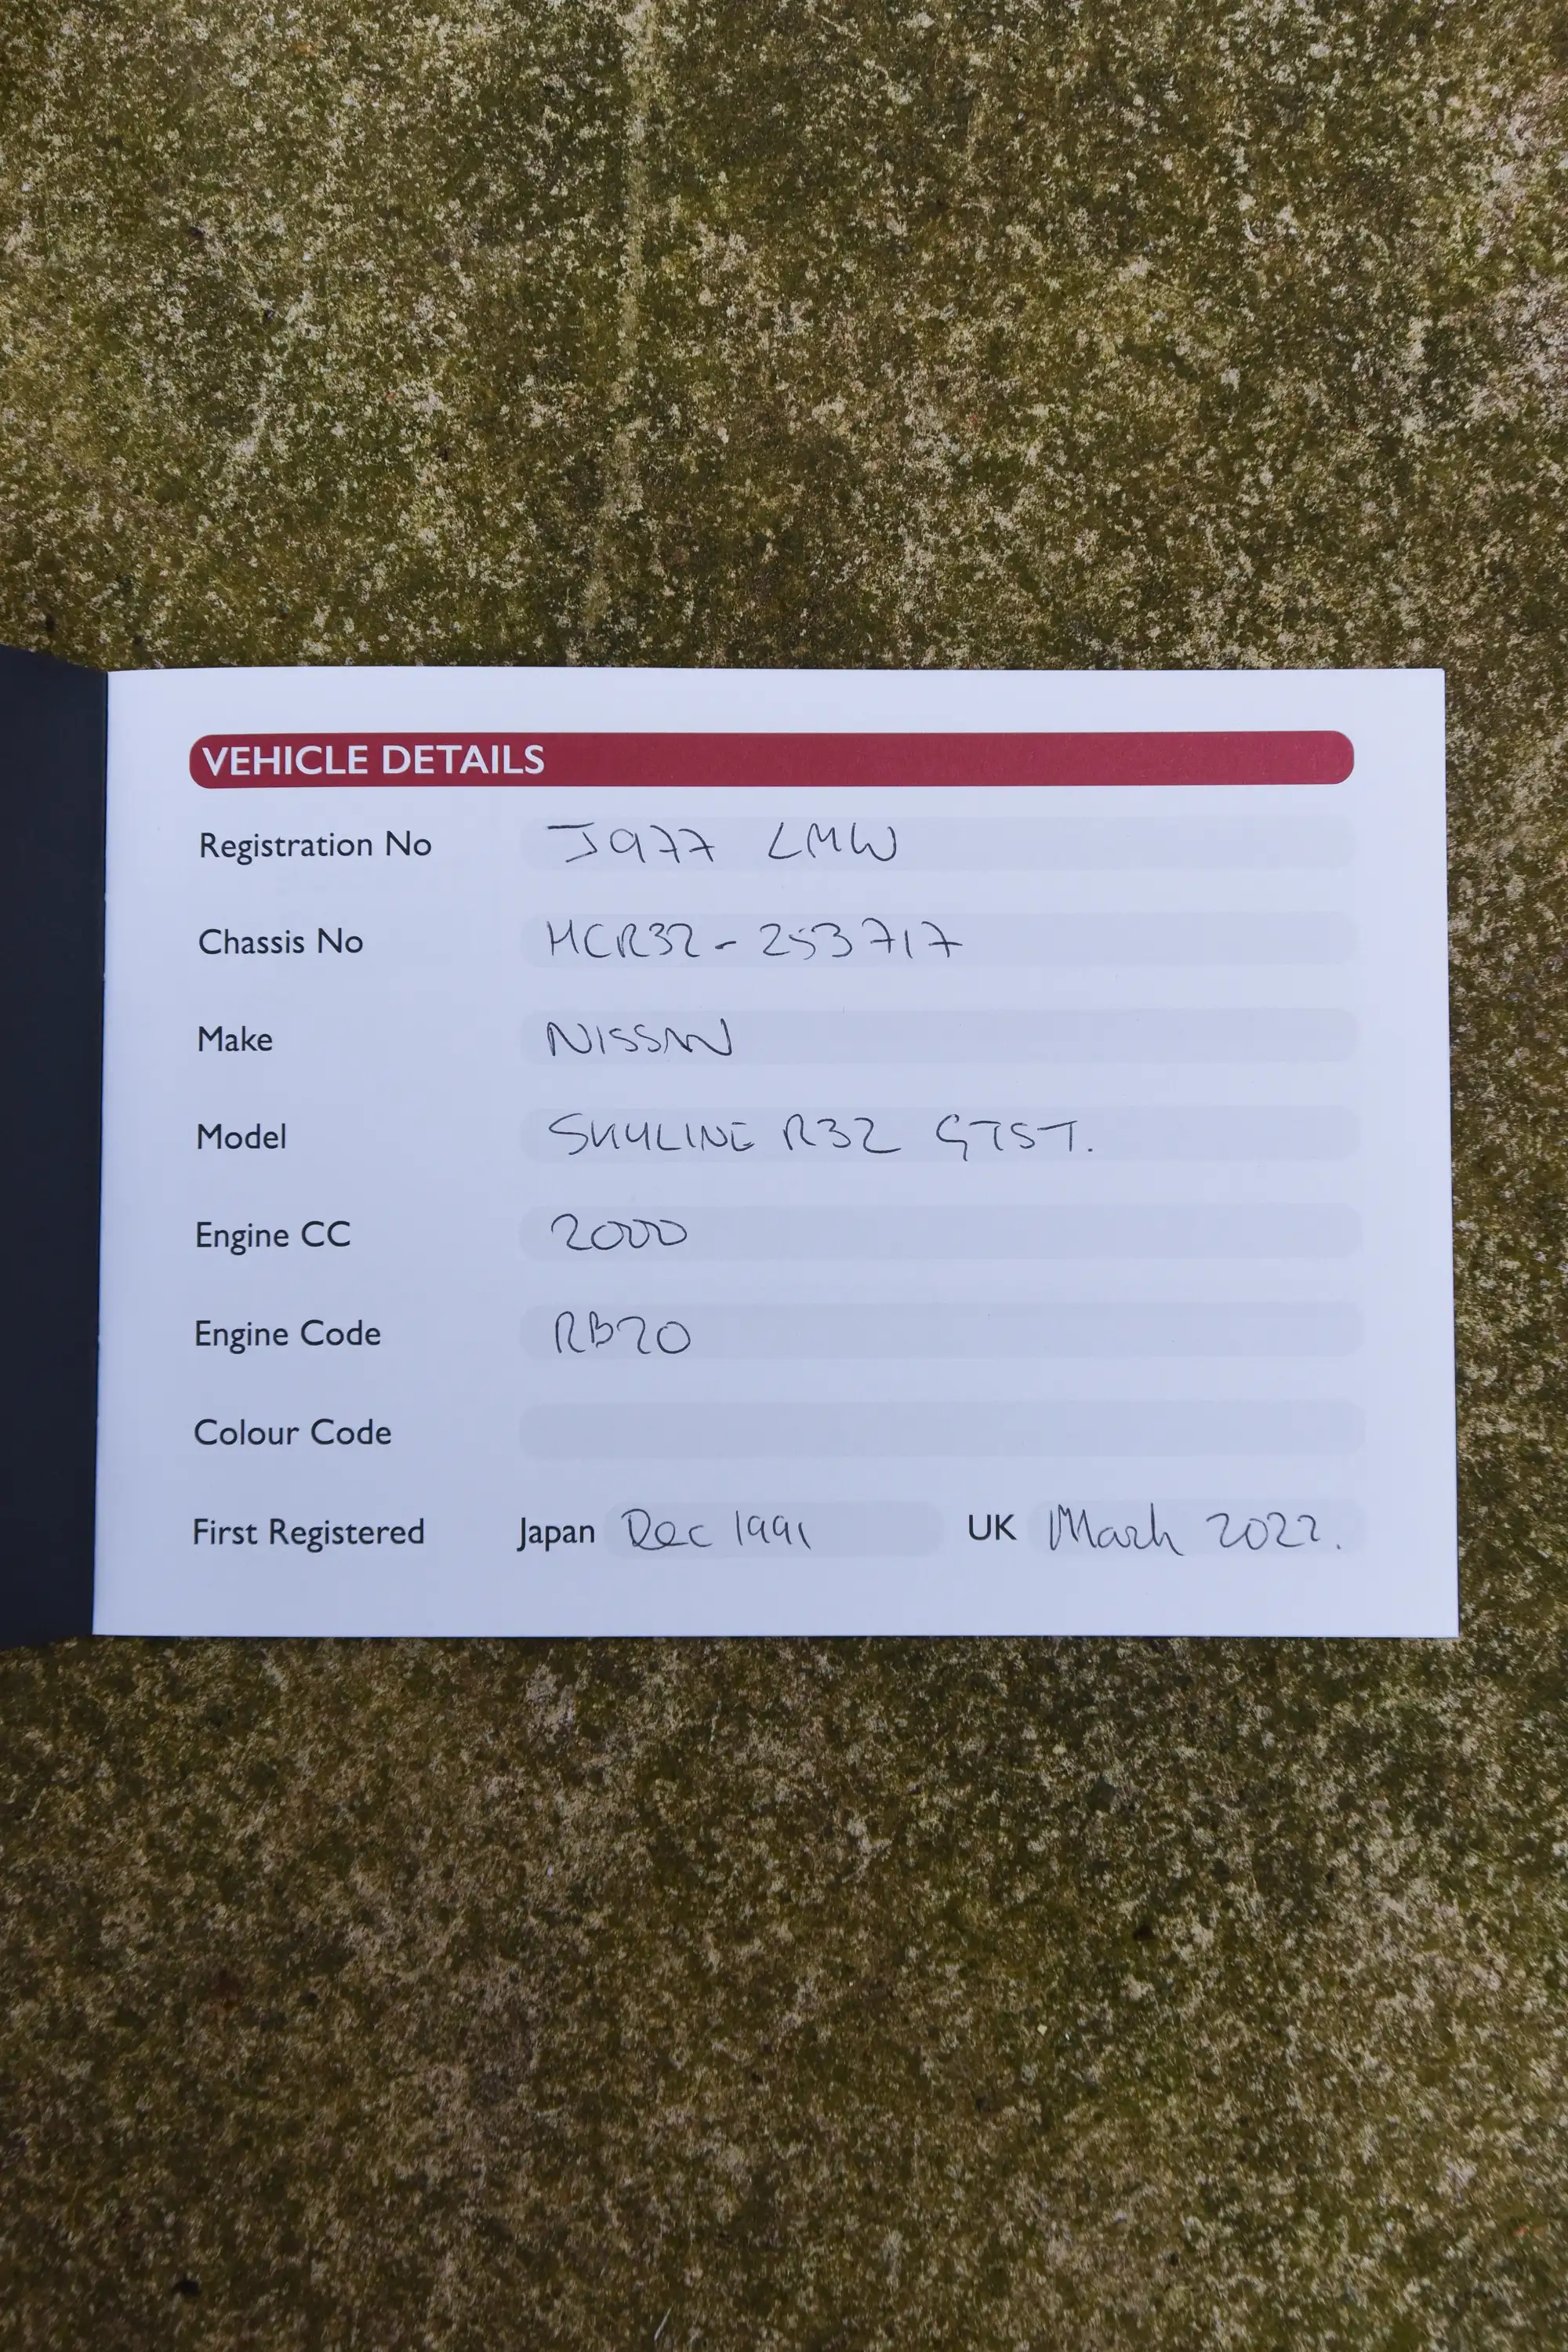 VEHICLE DETAILS
Registration No J977 LMW
Chassis No HCR32-253717
Make NISSAN
Model SKYLINE R32 GTST.
Engine CC 2000
Engine Code RB20
Colour Code
First Registered Japan Dec 1991 UK March 2022.